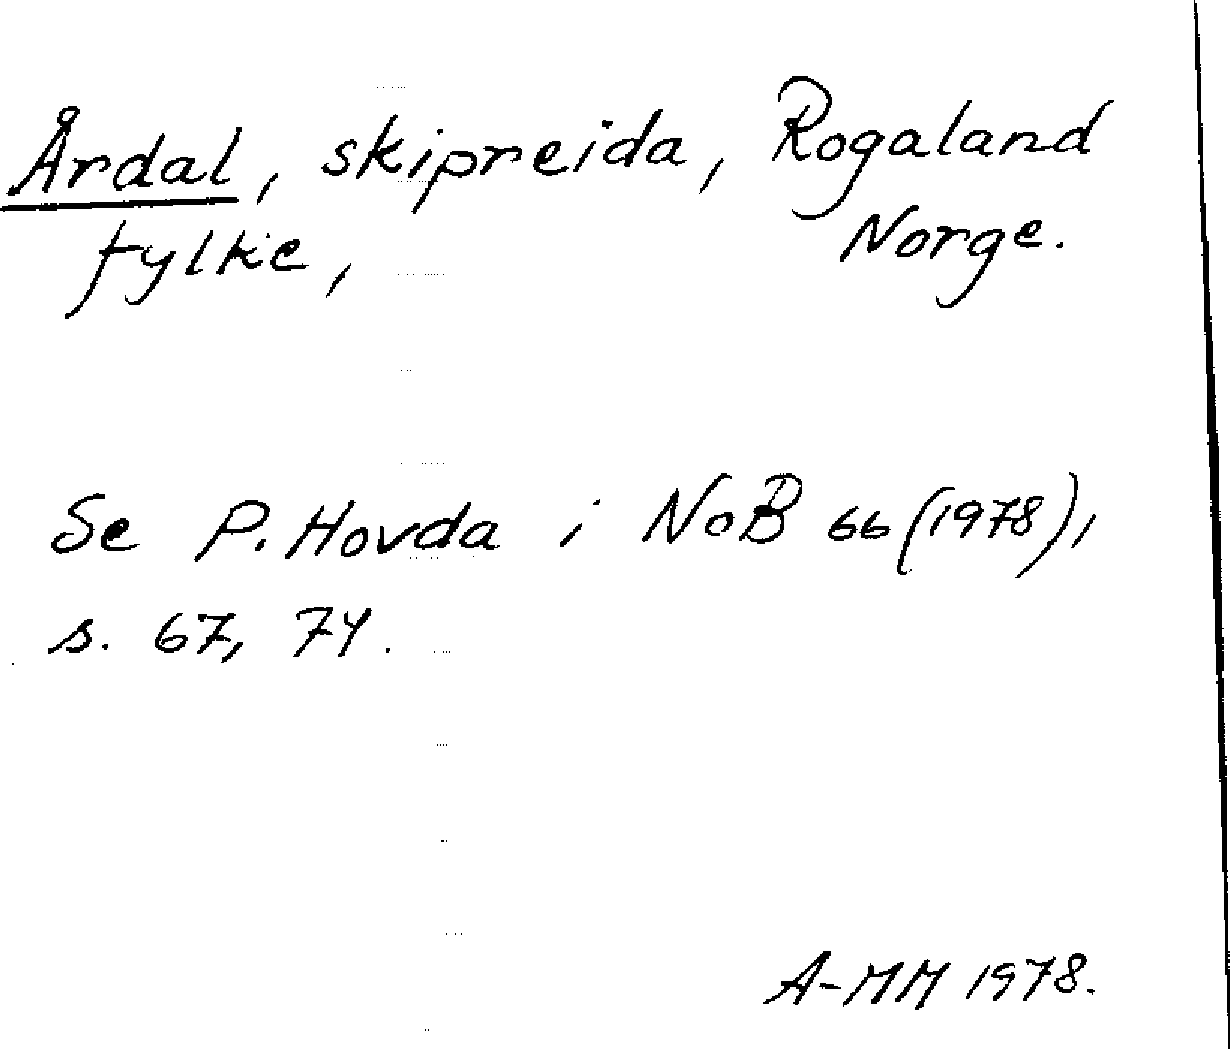 Årdal, skipreida, Rogaland
fylke, Norge.
Se P. Hovda i NoB 66 (1978),
s. 67, 74.
A-MM 1978.